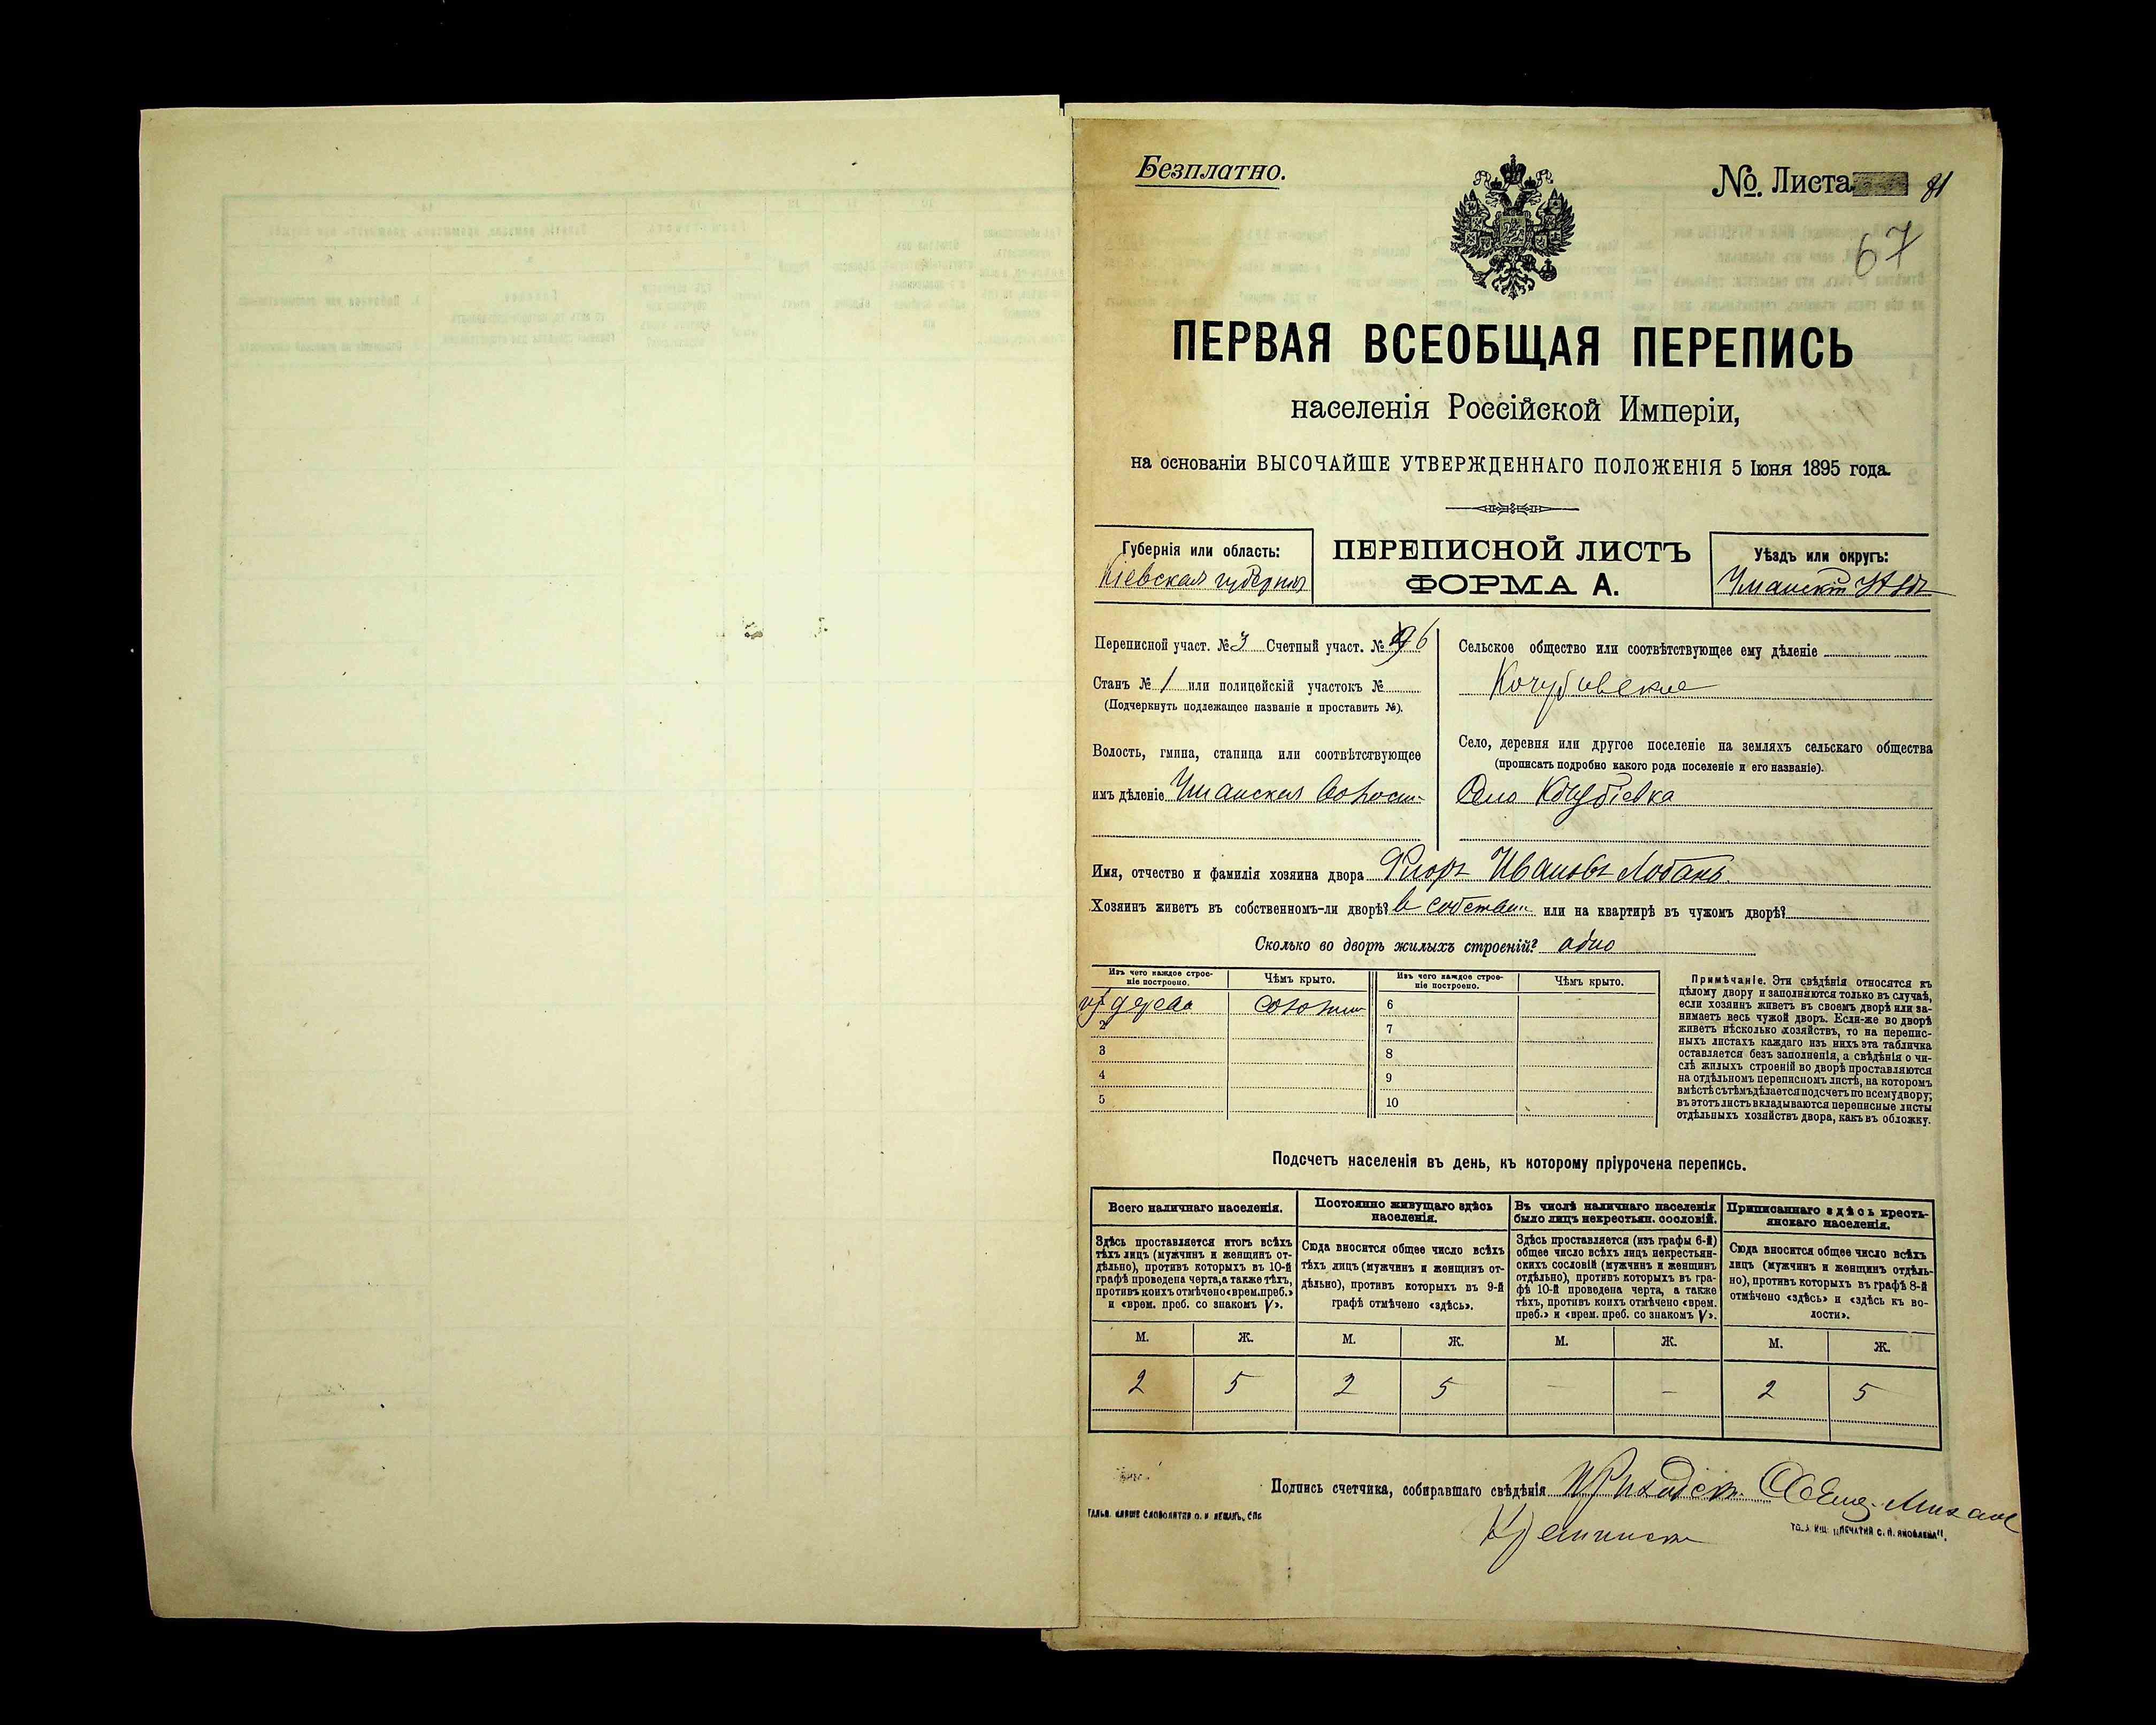 Безплатно.
№ Листа 81
67
ПЕРВАЯ ВСЕОБЩАЯ ПЕРЕПИСЬ
населенія Россійской Имперіи,
на основаніи ВЫСОЧАЙШЕ УТВЕРЖДЕННАГО ПОЛОЖЕНІЯ 5 Іюня 1895 года.
Губернія или область:
Кіевская губернія
ПЕРЕПИСНОЙ ЛИСТЪ
ФОРМА А.
Уѣздъ или округъ:
Уманскій
Переписной участ. № 3 Счетный участ. № 6
Станъ № 1 или полицейскій участокъ №
(Подчеркнуть подлежащее названіе и проставить №).
Волость, гмина, станица или соотвѣтствующее
имъ дѣленіе Уманская волость
Сельское общество или соотвѣтствующее ему дѣленіе
Кочубиевское
Село, деревня или другое поселеніе на земляхъ сельскаго общества
(прописать подробно какого рода поселеніе и его названіе).
Село Кочубіевка
Имя, отчество и фамилія хозяина двора Флоръ Ивановъ Лобань
Хозяинъ живетъ въ собственномъ-ли дворѣ? в собствен или на квартирѣ въ чужомъ дворѣ?
Сколько во дворѣ жилыхъ строеній? одно
Изъ чего каждое строе-
ніе построено.
Чѣмъ крыто.
Изъ чего каждое строе-
ніе построено.
Чѣмъ крыто.
из дерева
соломы
2
3
4
5
6
7
8
9
10
Примѣчаніе. Эти свѣдѣнія относятся къ
цѣлому двору и заполняются только въ случаѣ,
если хозяинъ живетъ въ своемъ дворѣ или за-
нимаетъ весь чужой дворъ. Если-же во дворѣ
живетъ нѣсколько хозяйствъ, то на перепис-
ныхъ листахъ каждаго изъ нихъ эта табличка
оставляется безъ заполненія, а свѣдѣнія о чи-
слѣ жилыхъ строеній во дворѣ проставляются
на отдѣльномъ переписномъ листѣ, на которомъ
вмѣстѣ съ тѣмъ дѣлается подсчетъ по всему двору;
въ этотъ листъ вкладываются переписные листы
отдѣльныхъ хозяйствъ двора, какъ въ обложку.
Подсчетъ населенія въ день, къ которому пріурочена перепись.
Всего наличнаго населенія.
Здѣсь проставляется итогъ всѣхъ
тѣхъ лицъ (мужчинъ и женщинъ от-
дѣльно), противъ которыхъ въ 10-й
графѣ проведена черта, а также тѣхъ,
противъ коихъ отмѣчено «врем. преб.»
и «врем. преб. со знакомъ V».
Постоянно живущаго здѣсь
населенія.
Сюда вносится общее число всѣхъ
тѣхъ лицъ (мужчинъ и женщинъ от-
дѣльно), противъ которыхъ въ 9-й
графѣ отмѣчено «здѣсь».
Въ числѣ наличнаго населенія
было лицъ некрестьян. сословій.
Здѣсь проставляется (изъ графы 6-й)
общее число всѣхъ лицъ некрестьян-
скихъ сословій (мужчинъ и женщинъ
отдѣльно), противъ которыхъ въ гра-
фѣ 10-й проведена черта, а также
тѣхъ, противъ коихъ отмѣчено «врем.
преб.» и «врем. преб. со знакомъ V».
Приписаннаго здѣсь кресть-
янскаго населенія.
Сюда вносится общее число всѣхъ
лицъ (мужчинъ и женщинъ отдѣль-
но), противъ которыхъ въ графѣ 8-й
отмѣчено «здѣсь» и «здѣсь къ во-
лости».
М. Ж. М. Ж. М. Ж. М. Ж.
2 5 2 5 – – 2 5
Подпись счетчика, собиравшаго свѣдѣнія